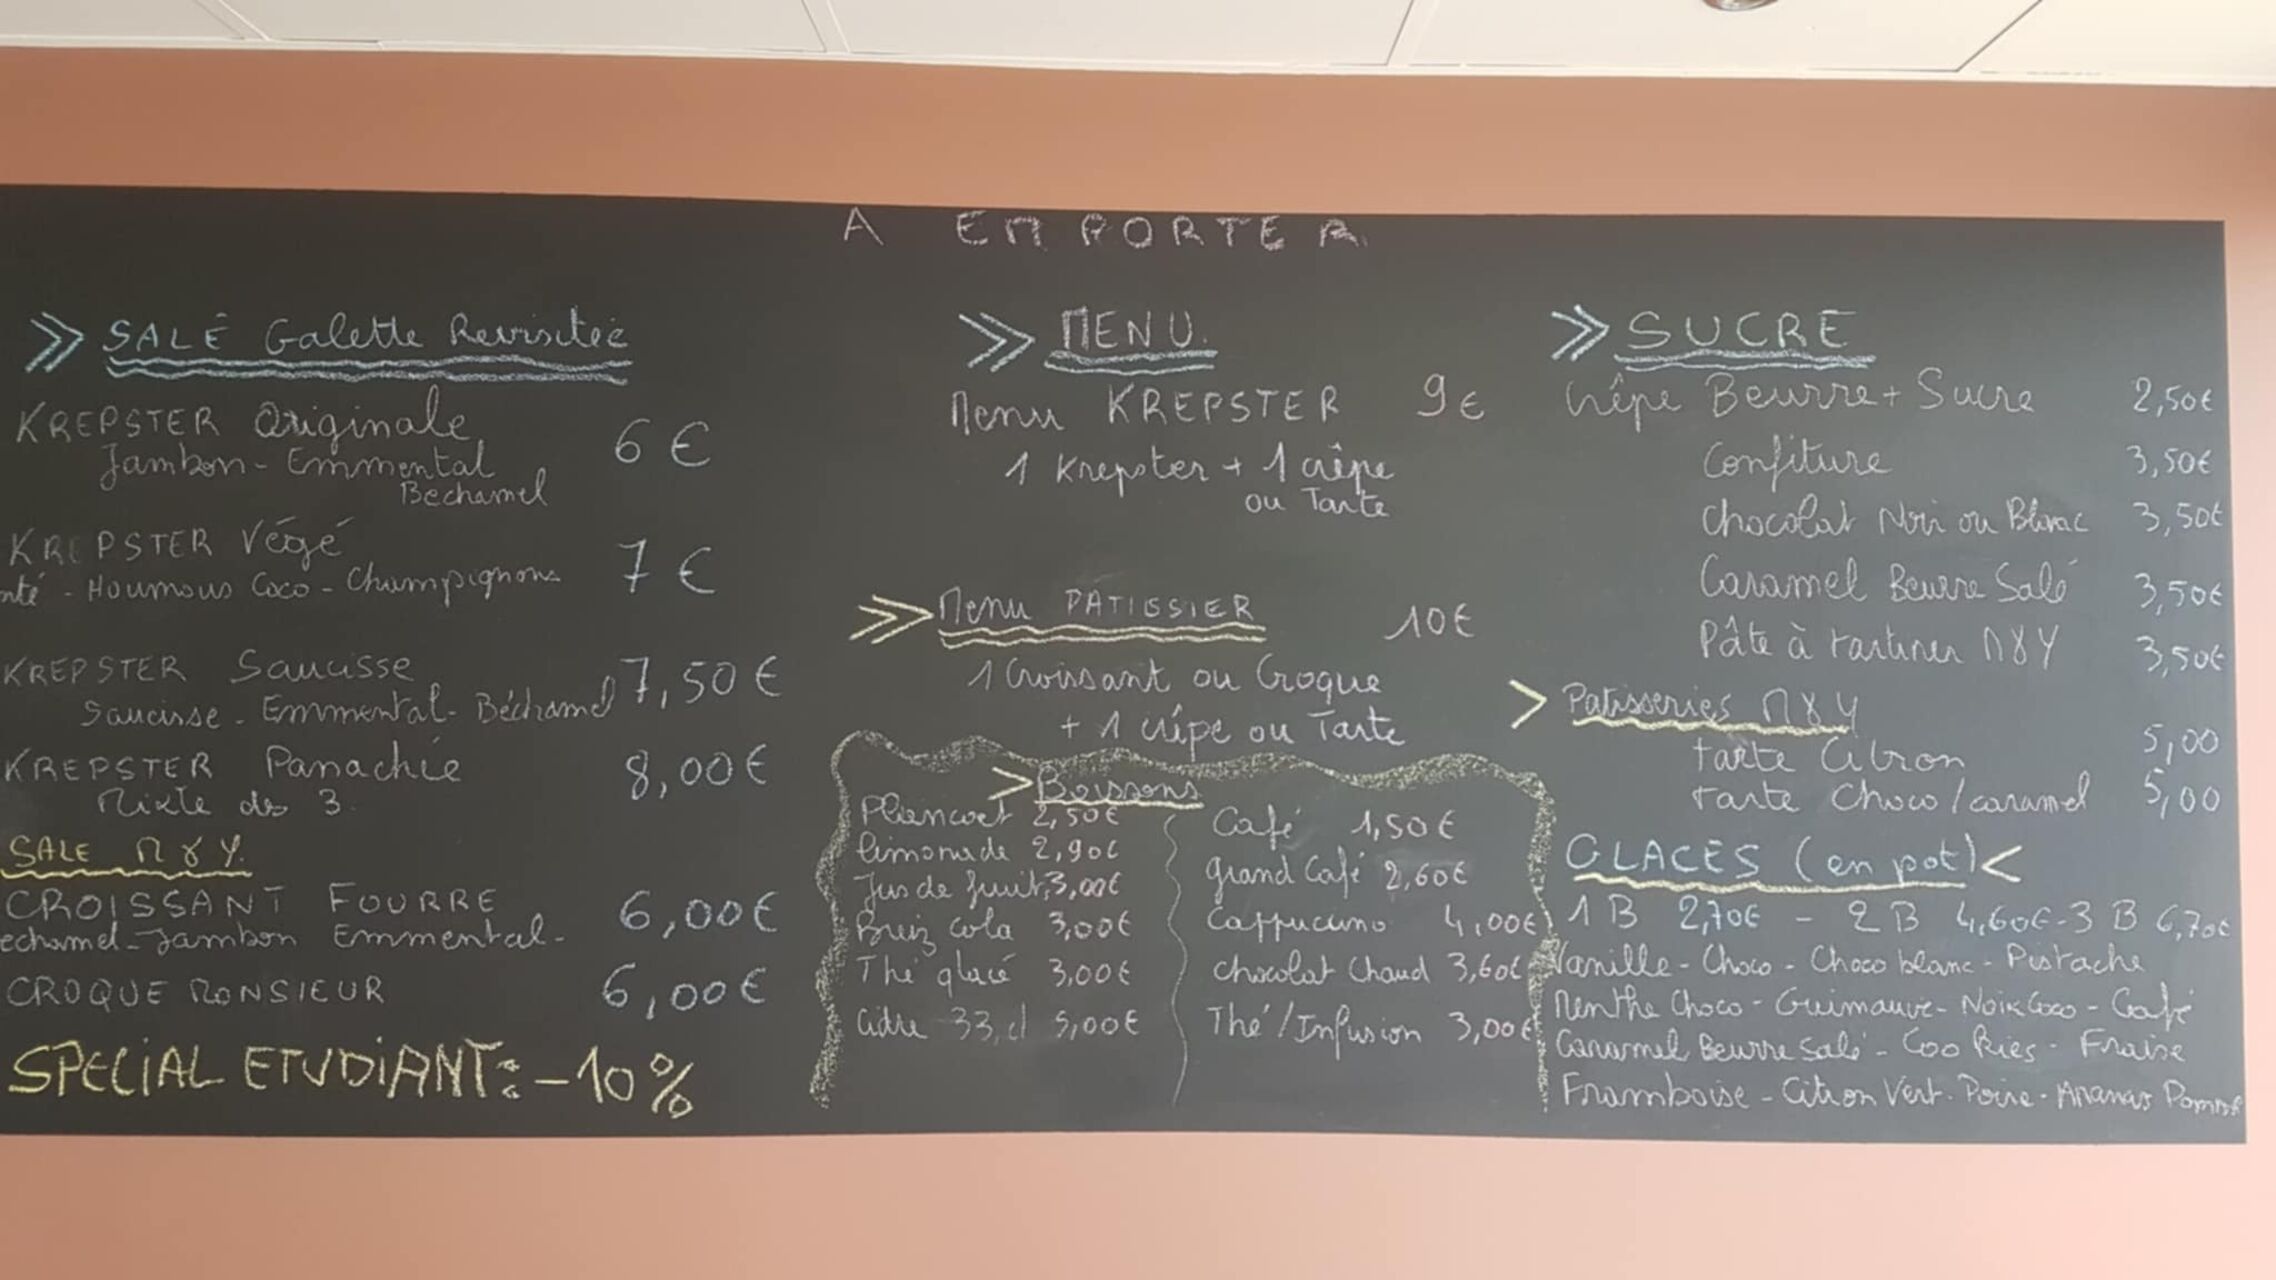 A EMPORTER
>> SALÉ Galette Revisitée
KREPSTER Originale 6 €
Jambon - Emmental
Bechamel
KREPSTER Végé 7 €
nté - Houmous Coco - Champignons
KREPSTER Saucisse 7,50 €
Saucisse - Emmental - Béchamel
KREPSTER Panachée 8,00 €
Mixte des 3.
SALE M&Y.
CROISSANT FOURRE 6,00 €
echamel - Jambon Emmental -
CROQUE MONSIEUR 6,00 €
SPECIAL ETUDIANT : -10%
>> MENU.
Menu KREPSTER 9 €
1 Krepster + 1 crêpe
ou Tarte
>> Menu PATISSIER 10 €
1 Croissant ou Croque
+ 1 crêpe ou Tarte
> Boissons
Plancoet 2,50 €
limonade 2,90 €
Jus de fruit 3,00 €
Breiz Cola 3,00 €
Thé glacé 3,00 €
Cidre 33 cl 5,00 €
Café 1,50 €
grand Café 2,60 €
Cappucino 4,00 €
chocolat Chaud 3,60 €
Thé / Infusion 3,00 €
>> SUCRE
Crêpe Beurre + Sucre 2,50 €
Confiture 3,50 €
Chocolat Noir ou Blanc 3,50 €
Caramel Beurre Salé 3,50 €
Pâte à tartiner M&Y 3,50 €
> Patisseries M&Y
tarte Citron 5,00
tarte Choco / caramel 5,00
GLACES (en pot) <
1 B 2,70 € - 2 B 4,60 € - 3 B 6,70 €
Vanille - Choco - Choco blanc - Pistache
Menthe Choco - Guimauve - Noix Coco - Café
Caramel Beurre Salé - Cookies - Fraise
Framboise - Citron Vert - Poire - Ananas Pomme